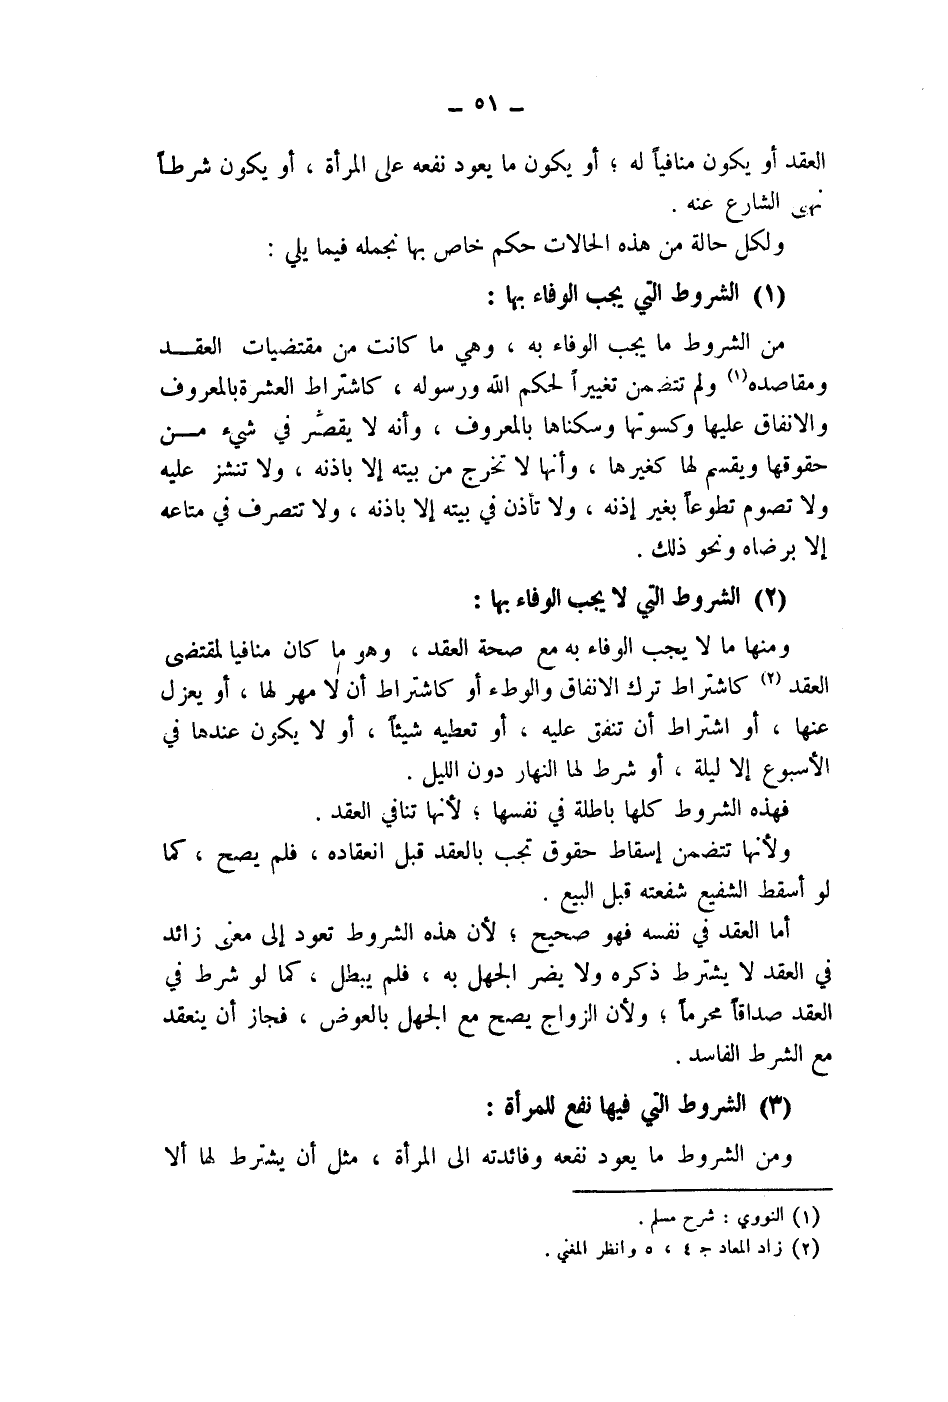 ــ ٥١ ــ
العقد أو يكون منافياً له ؛ أو يكون ما يعود نفعه على المرأة ، أو يكون شرطاً
نهى الشارع عنه .
ولكل حالة من هذه الحالات حكم خاص بها نجمله فيما يلي :
(١) الشروط التي يجب الوفاء بها :
من الشروط ما يجب الوفاء به ، وهي ما كانت من مقتضيات العقــد
ومقاصده(١) ولم تتضمن تغييراً لحكم الله ورسوله ، كاشتراط العشرة بالمعروف
والانفاق عليها وكسوتها وسكناها بالمعروف ، وأنه لا يقصّر في شيء مــن
حقوقها ويقسم لها كغيرها ، وأنها لا تخرج من بيته إلا باذنه ، ولا تنشز عليه
ولا تصوم تطوعاً بغير إذنه ، ولا تأذن في بيته إلا باذنه ، ولا تتصرف في متاعه
إلا برضاه ونحو ذلك .
(٢) الشروط التي لا يجب الوفاء بها :
ومنها ما لا يجب الوفاء به مع صحة العقد ، وهو ما كان منافيا لمقتضى
العقد (٢) كاشتراط ترك الانفاق والوطء أو كاشتراط أن لا مهر لها ، أو يعزل
عنها ، أو اشتراط أن تنفق عليه ، أو تعطيه شيئاً ، أو لا يكون عندها في
الأسبوع إلا ليلة ، أو شرط لها النهار دون الليل .
فهذه الشروط كلها باطلة في نفسها ؛ لأنها تنافي العقد .
ولأنها تتضمن إسقاط حقوق تجب بالعقد قبل انعقاده ، فلم يصح ، كما
لو أسقط الشفيع شفعته قبل البيع .
أما العقد في نفسه فهو صحيح ؛ لأن هذه الشروط تعود إلى معنى زائد
في العقد لا يشترط ذكره ولا يضر الجهل به ، فلم يبطل ، كما لو شرط في
العقد صداقاً محرماً ؛ ولأن الزواج يصح مع الجهل بالعوض ، فجاز أن ينعقد
مع الشرط الفاسد .
(٣) الشروط التي فيها نفع للمرأة :
ومن الشروط ما يعود نفعه وفائدته الى المرأة ، مثل أن يشترط لها ألا
(١) النووي : شرح مسلم .
(٢) زاد المعاد جـ ٤ ، ٥ وانظر المغني .